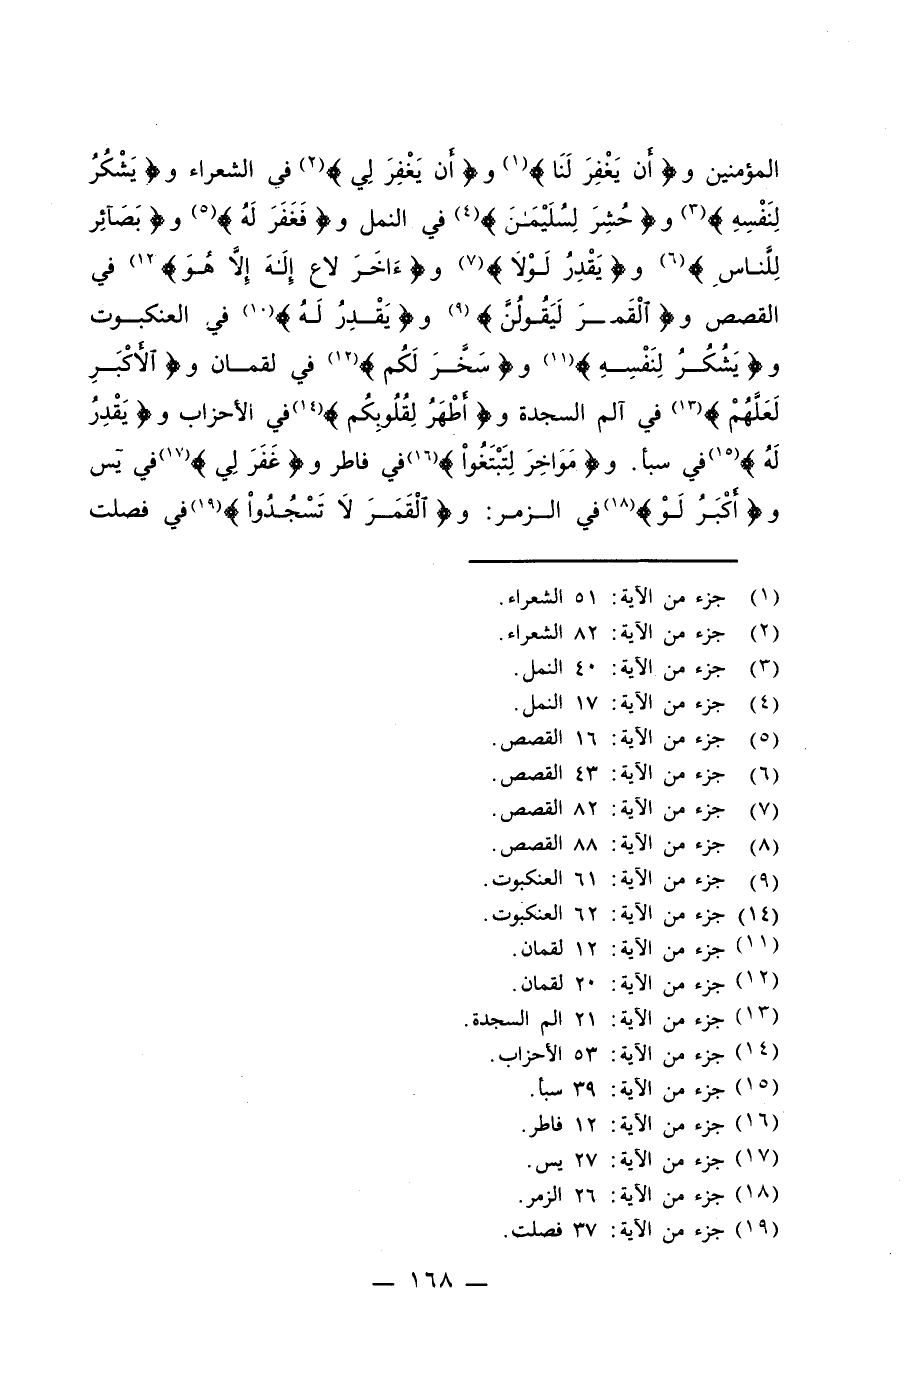 المؤمنين و﴿ أَن يَغْفِرَ لَنَا ﴾(١) و﴿ أَن يَغْفِرَ لِي ﴾(٢) في الشعراء و﴿ يَشْكُرُ
لِنَفْسِهِ ﴾(٣) و﴿ حُشِرَ لِسُلَيْمَـٰنَ ﴾(٤) في النمل و﴿ فَغَفَرَ لَهُ ﴾(٥) و﴿ بَصَآئِر
لِلَّناسِ ﴾(٦) و﴿ يَقْدِرُ لَوْلَا ﴾(٧) و﴿ ءَاخَرَ لاع إِلَـٰهَ إِلَّا هُوَ ﴾(١٢ في
القصص و﴿ ٱلْقَمـَـرَ لَيَقُولُنَّ ﴾(٩) و﴿ يَقْـدِرُ لَـهُ ﴾(١٠) في العنكبوت
و﴿ يَشْكُـرُ لِنَفْسِـهِ ﴾(١١) و﴿ سَخَّـرَ لَكُم ﴾(١٢) في لقمـان و﴿ ٱلأَكْبَـرِ
لَعَلَّهُمْ ﴾(١٣) في آلم السجدة و﴿ أَطْهَرُ لِقُلُوبِكُم ﴾(١٤)في الأحزاب و﴿ يَقْدِرُ
لَهُ ﴾(١٥)في سبأ. و﴿ مَوَاخِرَ لِتَبْتَغُواْ ﴾(١٦)في فاطر و﴿ غَفَرَ لِي ﴾(١٧)في يَس
و﴿ أَكْبَـرُ لَـوْ ﴾(١٨)في الـزمـر: و﴿ ٱلْقَمَـرَ لَا تَسْجُـدُواْ ﴾(١٩)في فصلت
(١) جزء من الآية: ٥١ الشعراء.
(٢) جزء من الآية: ٨٢ الشعراء.
(٣) جزء من الآية: ٤٠ النمل.
(٤) جزء من الآية: ١٧ النمل.
(٥) جزء من الآية: ١٦ القصص.
(٦) جزء من الآية: ٤٣ القصص.
(٧) جزء من الآية: ٨٢ القصص.
(٨) جزء من الآية: ٨٨ القصص.
(٩) جزء من الآية: ٦١ العنكبوت.
(١٤) جزء من الآية: ٦٢ العنكبوت.
(١١) جزء من الآية: ١٢ لقمان.
(١٢) جزء من الآية: ٢٠ لقمان.
(١٣) جزء من الآية: ٢١ الم السجدة.
(١٤) جزء من الآية: ٥٣ الأحزاب.
(١٥) جزء من الآية: ٣٩ سبأ.
(١٦) جزء من الآية: ١٢ فاطر.
(١٧) جزء من الآية: ٢٧ يس.
(١٨) جزء من الآية: ٢٦ الزمر.
(١٩) جزء من الآية: ٣٧ فصلت.
— ١٦٨ —